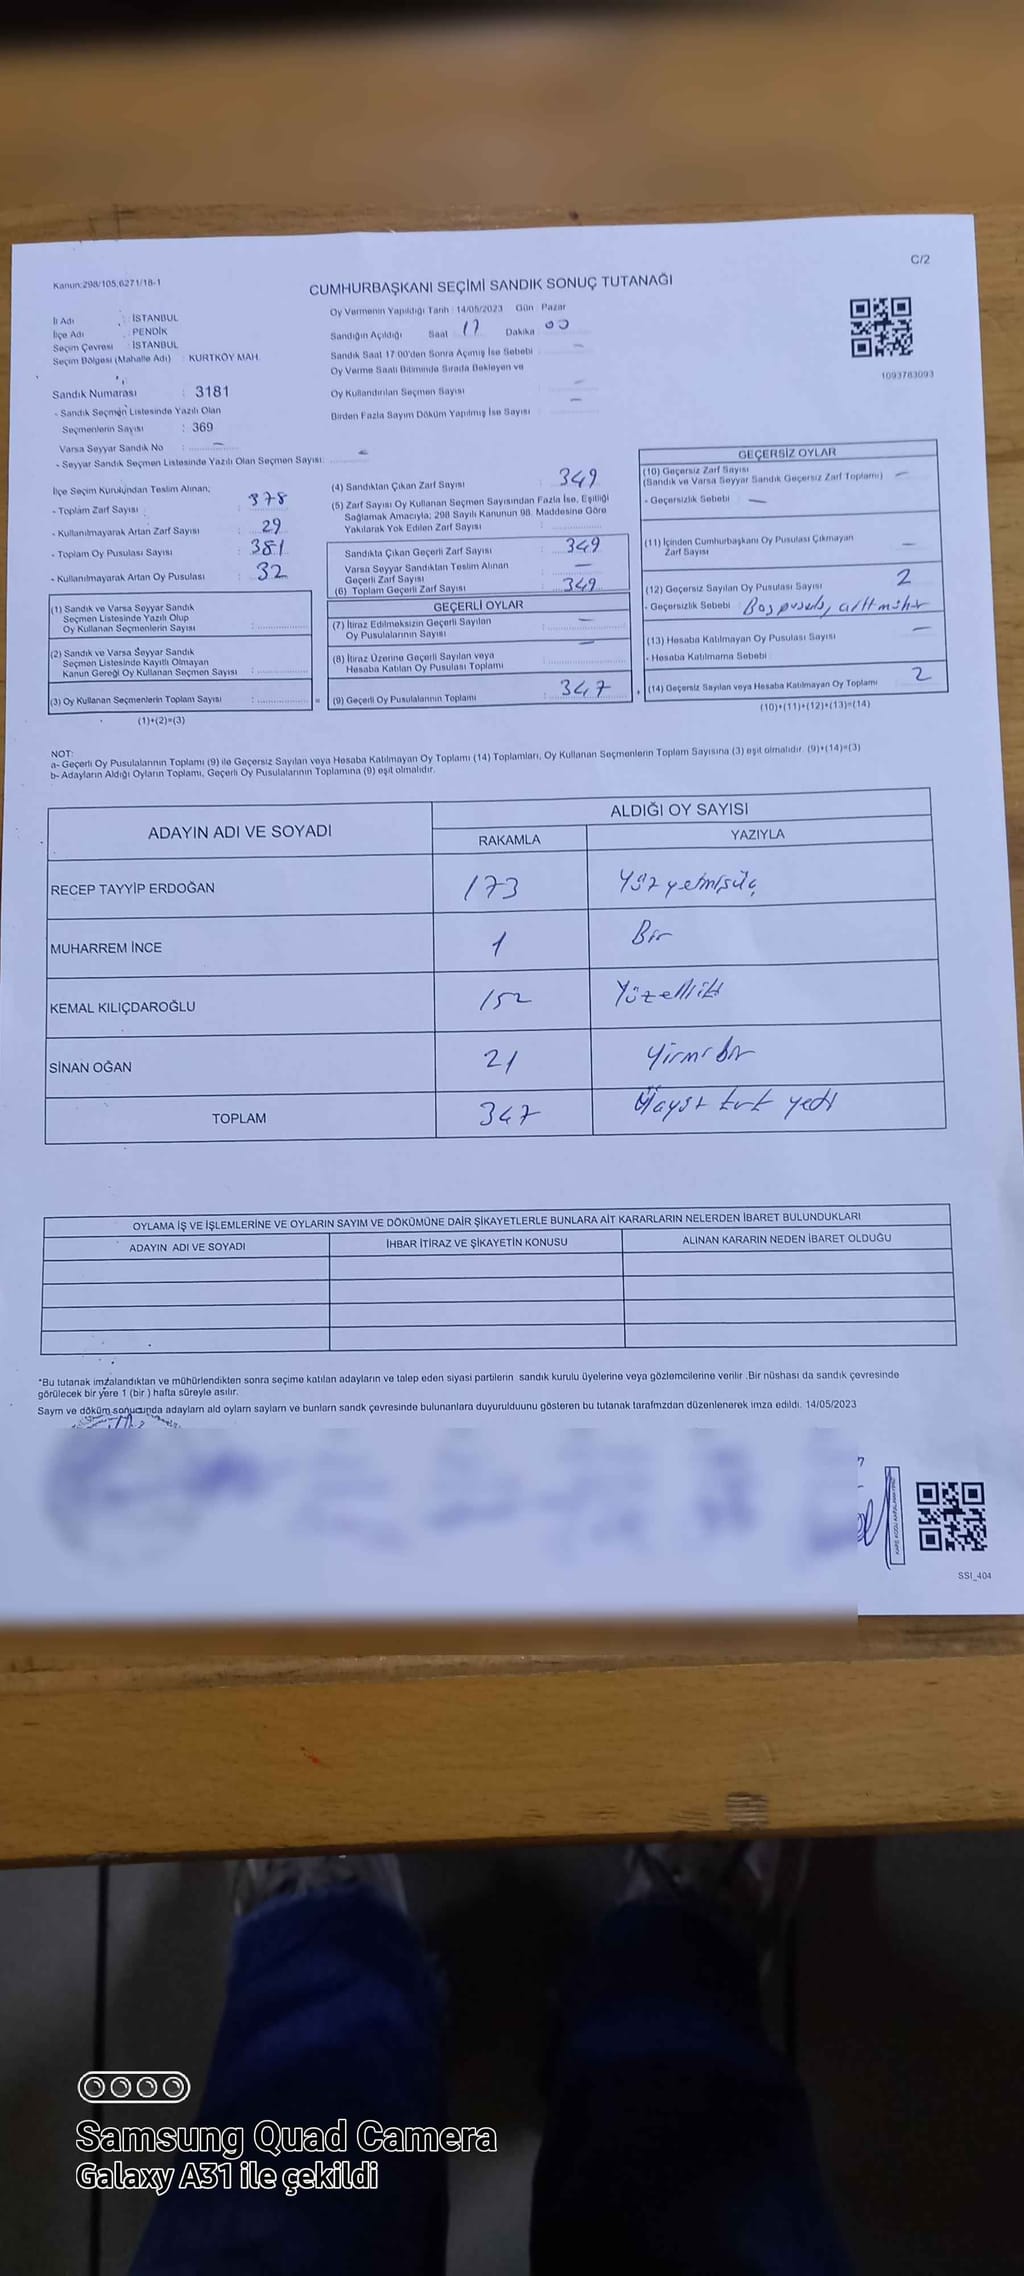 Kanun:298/105,6271/18-1
C/2
CUMHURBAŞKANI SEÇİMİ SANDIK SONUÇ TUTANAĞI
İl Adı : İSTANBUL
İlçe Adı : PENDİK
Seçim Çevresi : İSTANBUL
Seçim Bölgesi (Mahalle Adı) : KURTKÖY MAH.
Sandık Numarası : 3181
- Sandık Seçmen Listesinde Yazılı Olan
Seçmenlerin Sayısı : 369
Varsa Seyyar Sandık No : –
- Seyyar Sandık Seçmen Listesinde Yazılı Olan Seçmen Sayısı: –
Oy Vermenin Yapıldığı Tarih : 14/05/2023 Gün Pazar
Sandığın Açıldığı Saat 17 Dakika 00
Sandık Saat 17:00'den Sonra Açımış İse Sebebi –
Oy Verme Saati Bitiminde Sırada Bekleyen ve
Oy Kullandırılan Seçmen Sayısı –
Birden Fazla Sayım Döküm Yapılmış İse Sayısı –
1093763093
İlçe Seçim Kurulundan Teslim Alınan;
- Toplam Zarf Sayısı : 378
- Kullanılmayarak Artan Zarf Sayısı : 29
- Toplam Oy Pusulası Sayısı : 381
- Kullanılmayarak Artan Oy Pusulası : 32
(1) Sandık ve Varsa Seyyar Sandık
Seçmen Listesinde Yazılı Olup
Oy Kullanan Seçmenlerin Sayısı :
(2) Sandık ve Varsa Seyyar Sandık
Seçmen Listesinde Kayıtlı Olmayan
Kanun Gereği Oy Kullanan Seçmen Sayısı :
(3) Oy Kullanan Seçmenlerin Toplam Sayısı : =
(1)+(2)=(3)
(4) Sandıktan Çıkan Zarf Sayısı : 349
(5) Zarf Sayısı Oy Kullanan Seçmen Sayısından Fazla İse, Eşitliği
Sağlamak Amacıyla; 298 Sayılı Kanunun 98. Maddesine Göre
Yakılarak Yok Edilen Zarf Sayısı :
Sandıkta Çıkan Geçerli Zarf Sayısı : 349
Varsa Seyyar Sandıktan Teslim Alınan
Geçerli Zarf Sayısı –
(6) Toplam Geçerli Zarf Sayısı : 349
GEÇERLİ OYLAR
(7) İtiraz Edilmeksizin Geçerli Sayılan
Oy Pusulalarının Sayısı : –
(8) İtiraz Üzerine Geçerli Sayılan veya
Hesaba Katılan Oy Pusulası Toplamı : –
(9) Geçerli Oy Pusulalarının Toplamı : 347 +
GEÇERSİZ OYLAR
(10) Geçersiz Zarf Sayısı
(Sandık ve Varsa Seyyar Sandık Geçersiz Zarf Toplamı) –
- Geçersizlik Sebebi –
(11) İçinden Cumhurbaşkanı Oy Pusulası Çıkmayan
Zarf Sayısı –
(12) Geçersiz Sayılan Oy Pusulası Sayısı 2
- Geçersizlik Sebebi : Boş pusula,
(13) Hesaba Katılmayan Oy Pusulası Sayısı –
- Hesaba Katılmama Sebebi
(14) Geçersiz Sayılan veya Hesaba Katılmayan Oy Toplamı 2
(10)+(11)+(12)+(13)=(14)
NOT:
a- Geçerli Oy Pusulalarının Toplamı (9) ile Geçersiz Sayılan veya Hesaba Katılmayan Oy Toplamı (14) Toplamları, Oy Kullanan Seçmenlerin Toplam Sayısına (3) eşit olmalıdır. (9)+(14)=(3)
b- Adayların Aldığı Oyların Toplamı, Geçerli Oy Pusulalarının Toplamına (9) eşit olmalıdır.
ADAYIN ADI VE SOYADI
ALDIĞI OY SAYISI
RAKAMLA YAZIYLA
RECEP TAYYİP ERDOĞAN 173 Yüz yetmişüç
MUHARREM İNCE 1 Bir
KEMAL KILIÇDAROĞLU 152 Yüzelliiki
SİNAN OĞAN 21 Yirmi bir
TOPLAM 347 Üçyüz kırk yedi
OYLAMA İŞ VE İŞLEMLERİNE VE OYLARIN SAYIM VE DÖKÜMÜNE DAİR ŞİKAYETLERLE BUNLARA AİT KARARLARIN NELERDEN İBARET BULUNDUKLARI
ADAYIN ADI VE SOYADI İHBAR İTİRAZ VE ŞİKAYETİN KONUSU ALINAN KARARIN NEDEN İBARET OLDUĞU
*Bu tutanak imzalandıktan ve mühürlendikten sonra seçime katılan adayların ve talep eden siyasi partilerin sandık kurulu üyelerine veya gözlemcilerine verilir .Bir nüshası da sandık çevresinde
görülecek bir yere 1 (bir ) hafta süreyle asılır.
Saym ve döküm sonucunda adaylarn ald oylarn saylarn ve bunlarn sandk çevresinde bulunanlara duyurulduunu gösteren bu tutanak tarafmzdan düzenlenerek imza edildi. 14/05/2023
SSI_404
Samsung Quad Camera
Galaxy A31 ile çekildi